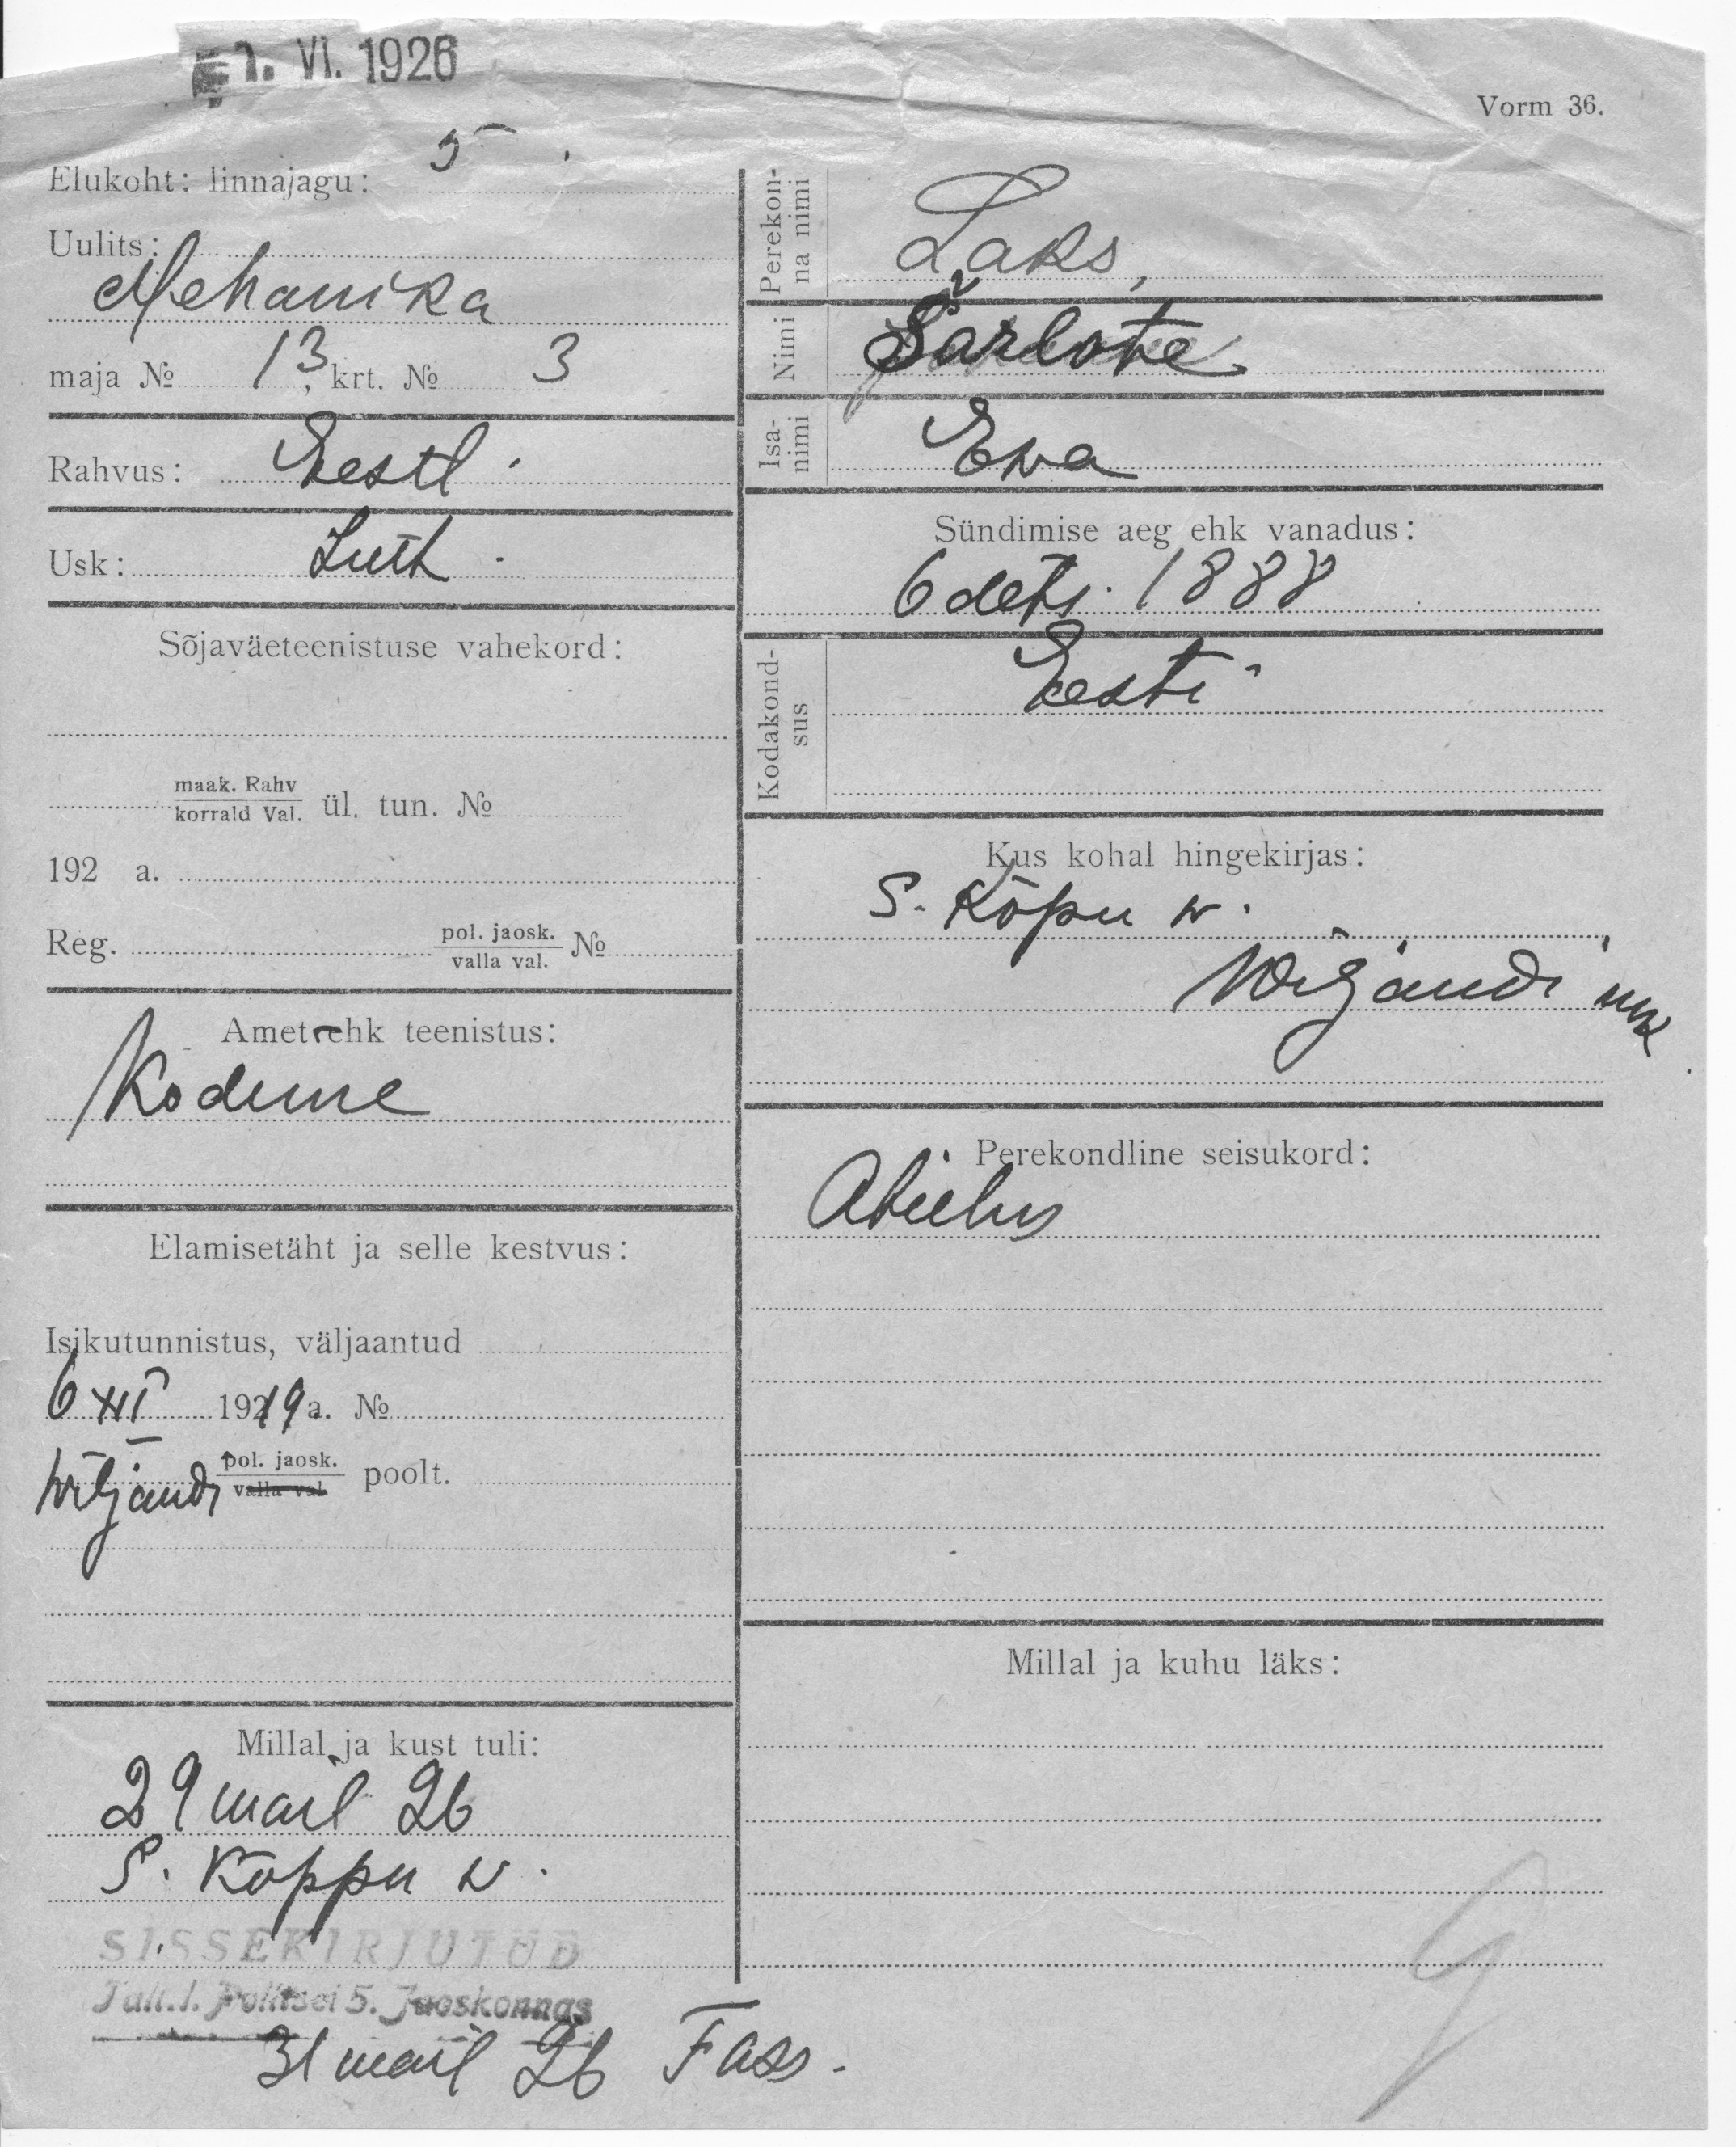 1. VI. 1926
Vorm 36.
Elukoht: linnajagu: 5
Uulits:
Mehanika
maja № 13, krt. № 3
Rahvus: Eestl.
Usk: Luth.
Sõjaväeteenistuse vahekord:
maak. Rahv
korrald Val. ül. tun. №
192 a.
Reg. pol. jaosk.
valla val. №
Amet ehk teenistus:
Kodune
Elamisetäht ja selle kestvus:
Isikutunnistus, väljaantud
6 XII 1919 a. №
Wiljandi pol. jaosk.
valla val. poolt.
Millal ja kust tuli:
29 mail 26
S. Kõppu w.
SISSEKIRJUTUD
Tall. l. Politsei 5. Jaoskonnas
31 mail 26 Fass.
Perekon-
na nimi
Laks,
Nimi
Šarlote
Isa-
nimi
Ewa
Sündimise aeg ehk vanadus:
6 dets. 1888
Kodakond-
sus
Eesti
Kus kohal hingekirjas:
S. Kõpu w.
Wiljandi mk
Perekondline seisukord:
Abielus
Millal ja kuhu läks: